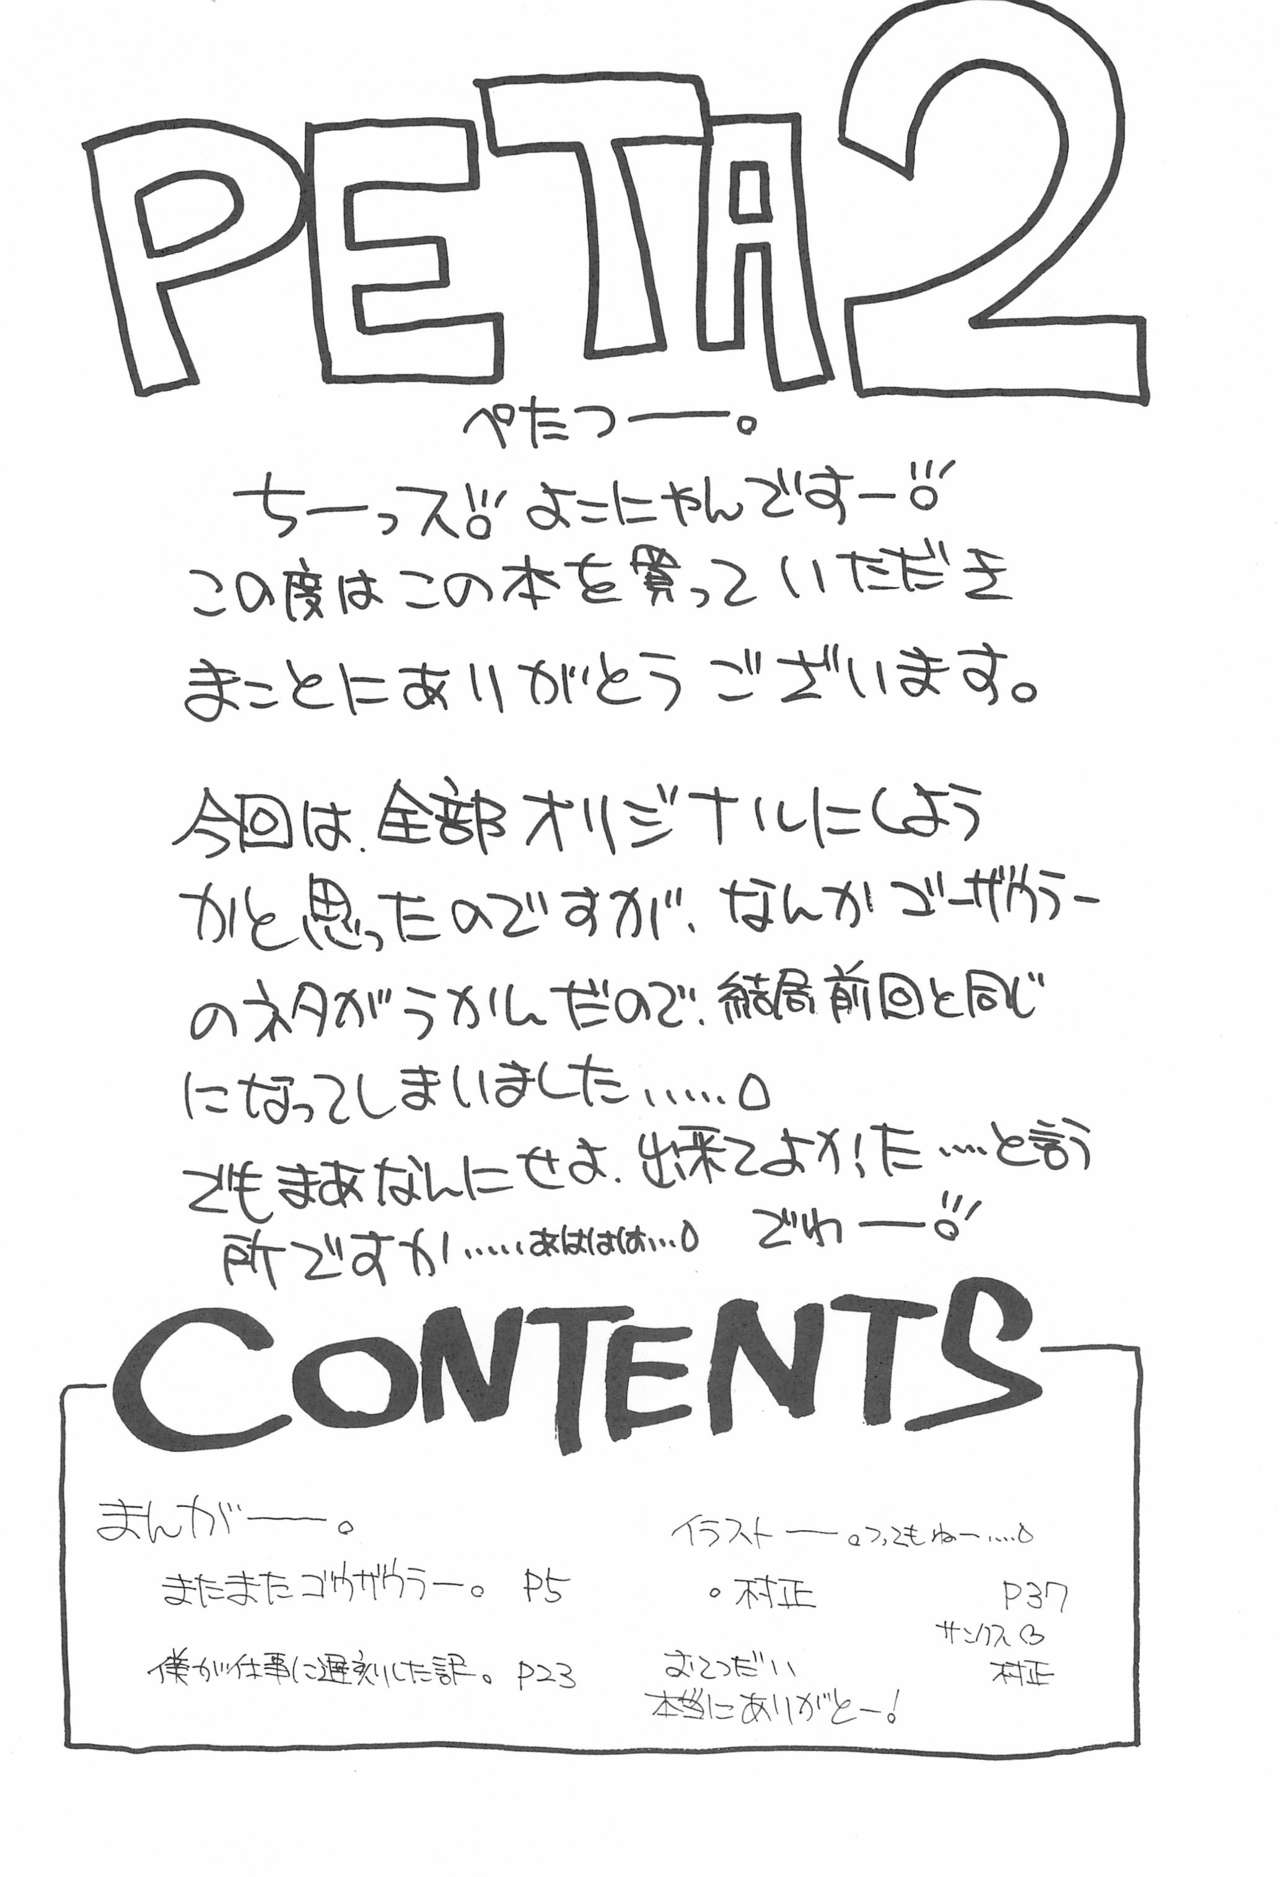 PETA2
ぺたつー。
ちーっス!! よこにゃんですー!!
この度はこの本を買っていただき
まことにありがとうございます。
今回は、全部オリジナルにしよう
かと思ったのですが、なんかゴーザウラー
のネタがうかんだので、結局前回と同じ
になってしまいました……。
でもまあなんにせよ、出来てよかった…と言う
所ですか……あはははは…。 でわー!!
CONTENTS
まんがー。
またまたゴウザウラー。 P5
僕が仕事に遅刻した訳。 P23
イラストー。ってもねー……。
。村正 P37
サンクス♡
村正
おてつだい
本当にありがとー!